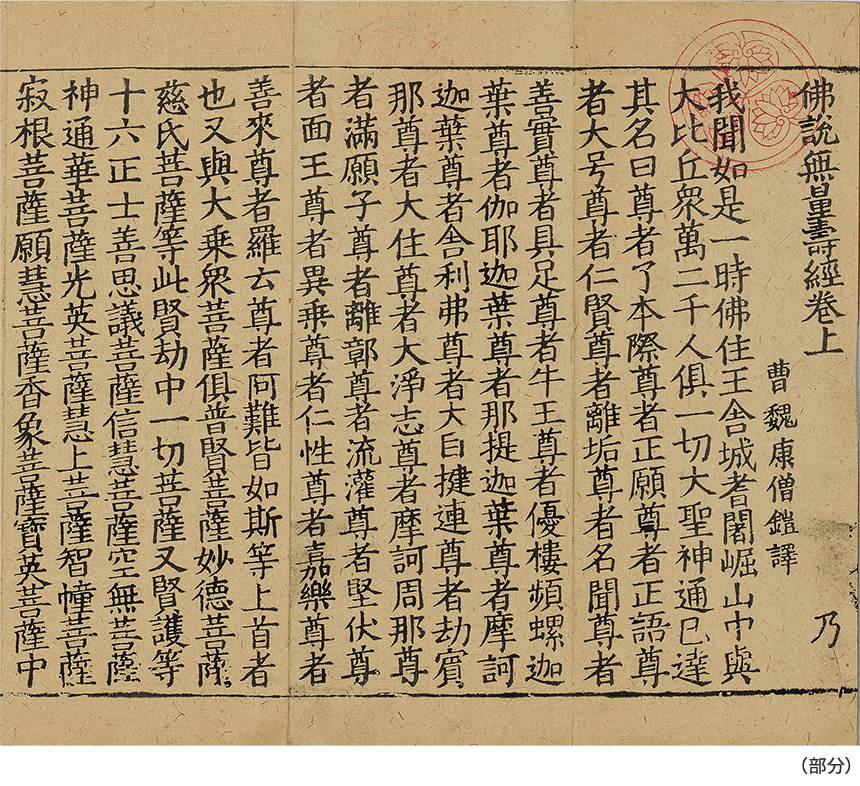 佛說無量壽經卷上
乃
曹魏康僧鎧譯
我聞如是一時佛住王舍城耆闍崛山中與
大比丘衆萬二千人俱一切大聖神通已達
其名曰尊者了本際尊者正願尊者正語尊
者大号尊者仁賢尊者離垢尊者名聞尊者
善實尊者具足尊者牛王尊者優樓頻螺迦
葉尊者伽耶迦葉尊者那提迦葉尊者摩訶
迦葉尊者舍利弗尊者大目揵連尊者劫賓
那尊者大住尊者大淨志尊者摩訶周那尊
者滿願子尊者離鄣尊者流灌尊者堅伏尊
者面王尊者異乘尊者仁性尊者嘉樂尊者
善來尊者羅云尊者阿難皆如斯等上首者
也又與大乘衆菩薩俱普賢菩薩妙德菩薩
慈氏菩薩等此賢劫中一切菩薩又賢護等
十六正士善思議菩薩信慧菩薩空無菩薩
神通華菩薩光英菩薩慧上菩薩智幢菩薩
寂根菩薩願慧菩薩香象菩薩寶英菩薩中
（部分）